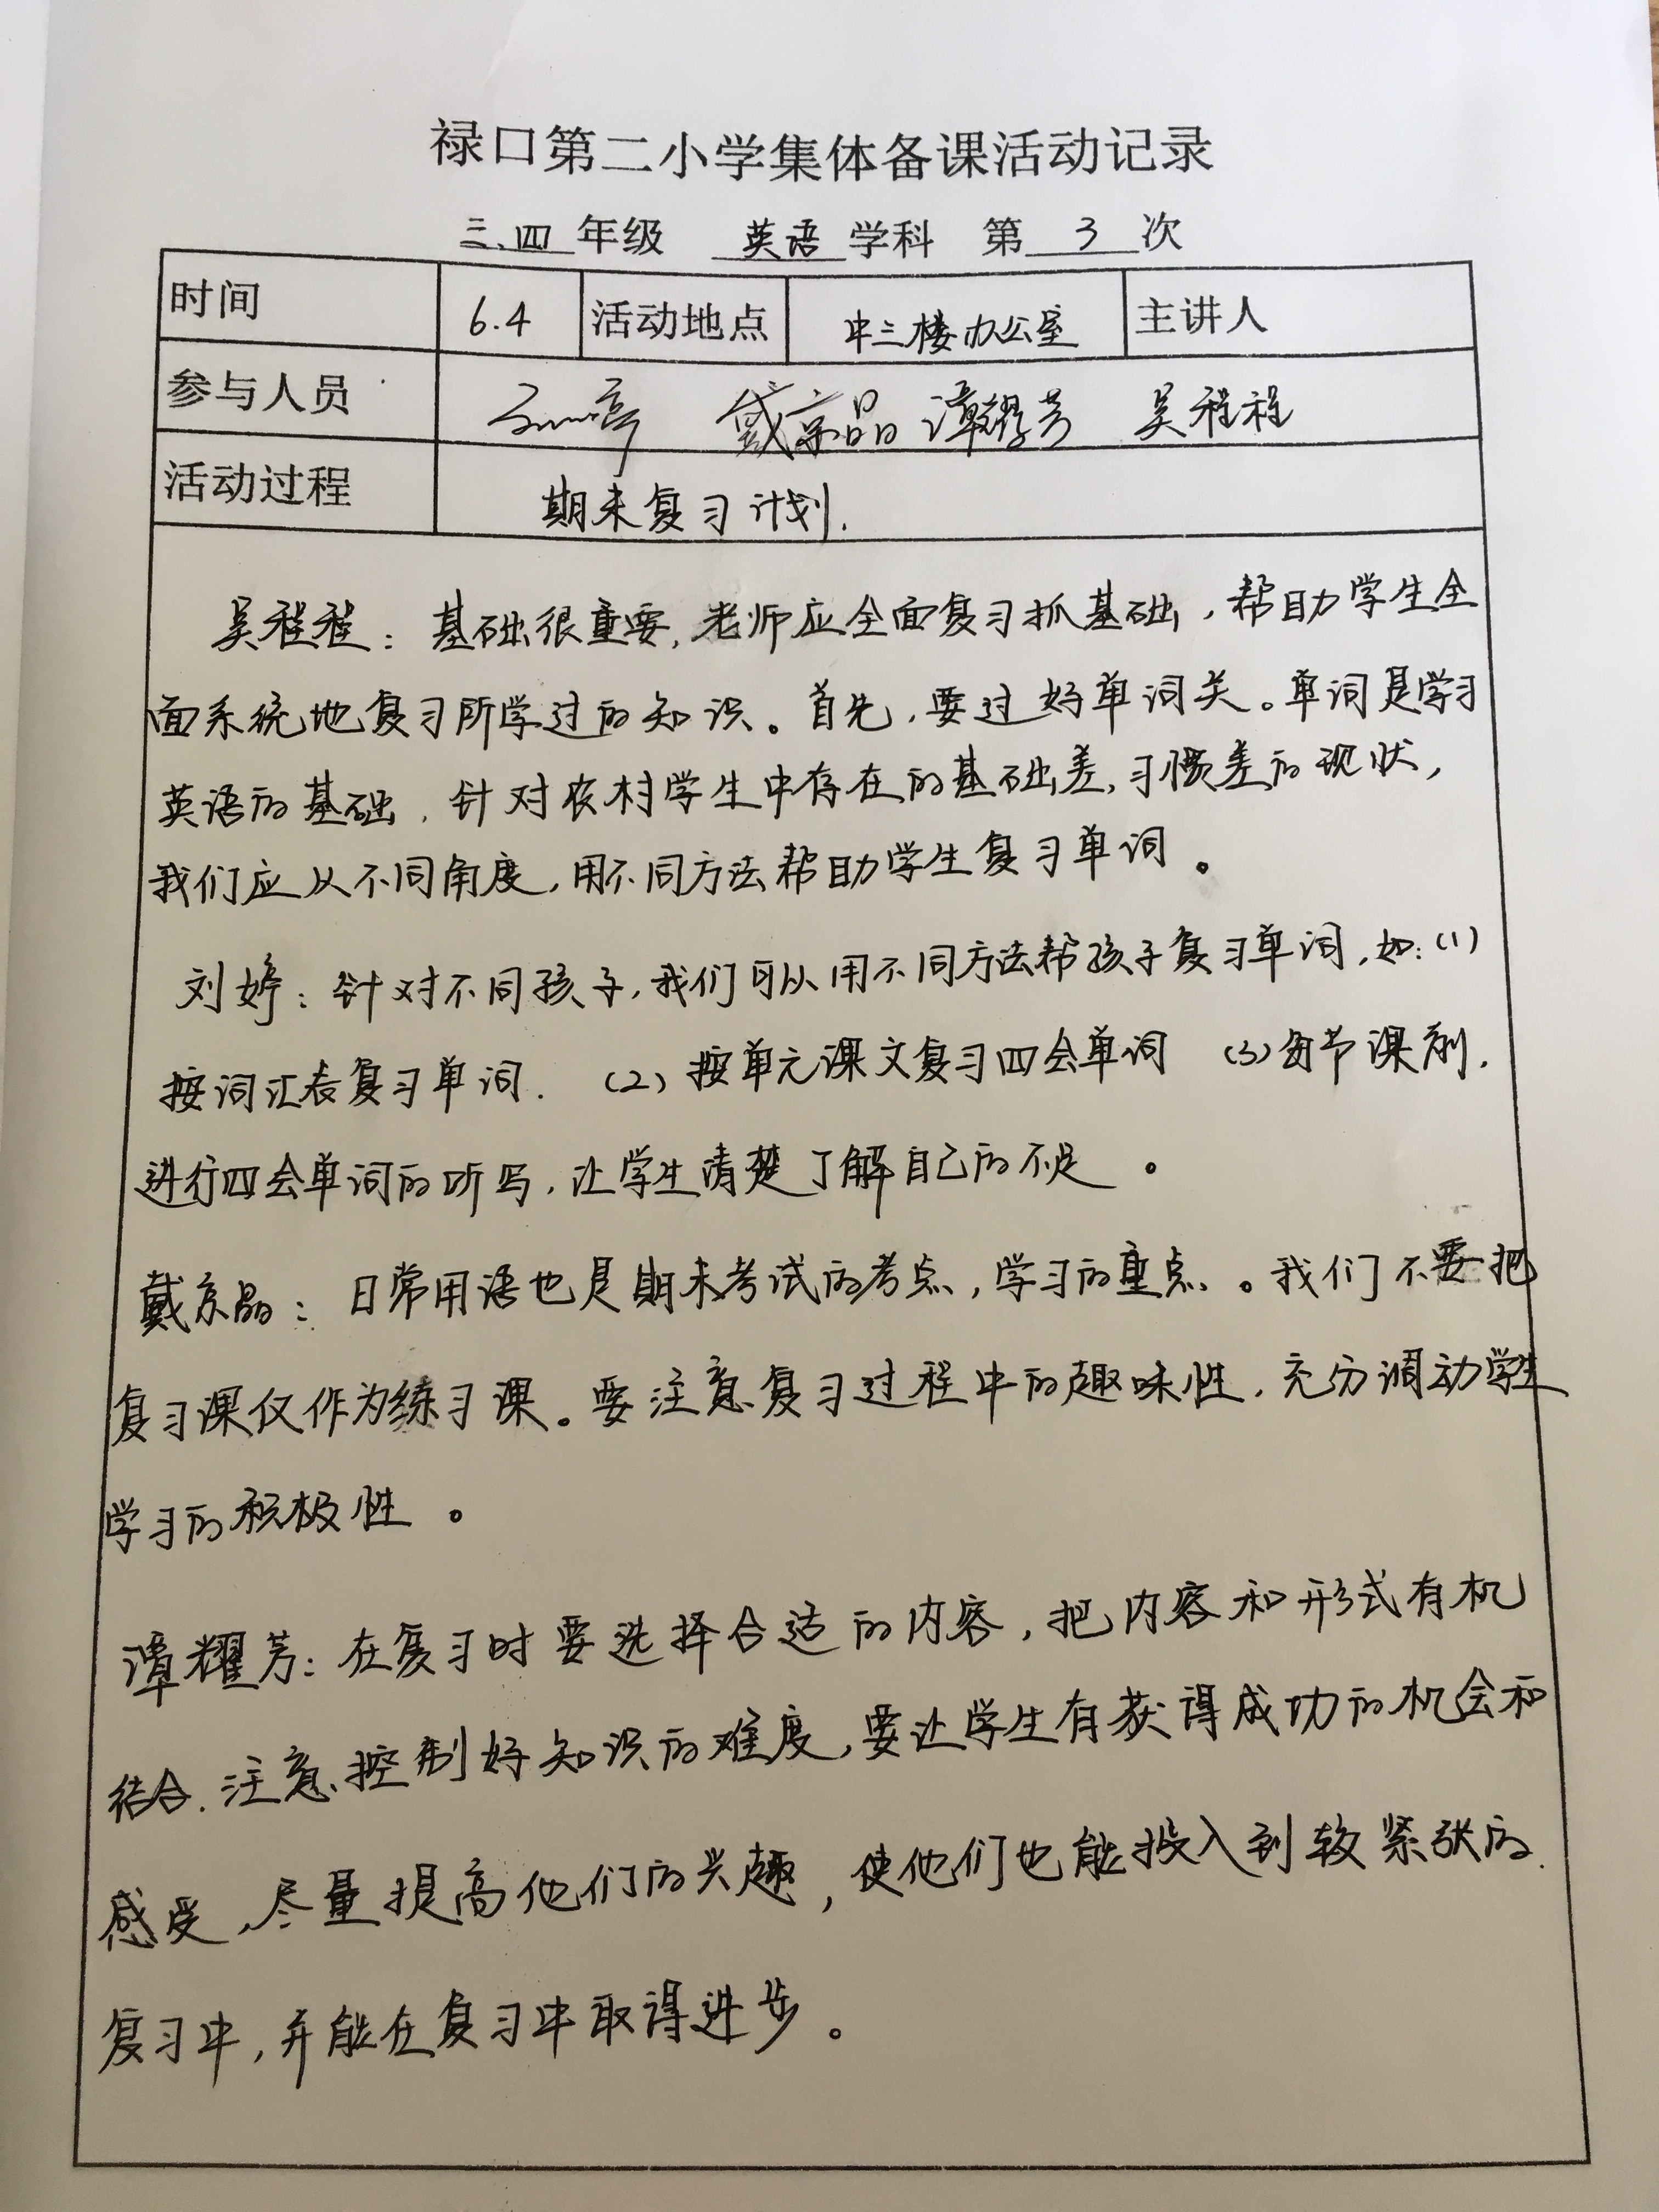 禄口第二小学集体备课活动记录
三、四 年级 英语 学科 第 3 次
时间 6.4 活动地点 中三楼办公室 主讲人
参与人员 戴京晶 谭耀芳 吴程程
活动过程 期末复习计划.
吴程程：基础很重要,老师应全面复习抓基础，帮助学生全
面系统地复习所学过的知识。首先，要过好单词关。单词是学习
英语的基础，针对农村学生中存在的基础差,习惯差的现状，
我们应从不同角度,用不同方法帮助学生复习单词。
刘婷：针对不同孩子,我们可以用不同方法帮孩子复习单词,如:(1)
按词汇表复习单词. (2)按单元课文复习四会单词 (3)每节课前.
进行四会单词的听写,让学生清楚了解自己的不足。
戴京晶：日常用语也是期末考试的考点,学习的重点。我们不要把
复习课仅作为练习课。要注意复习过程中的趣味性,充分调动学生
学习的积极性。
谭耀芳：在复习时要选择合适的内容,把内容和形式有机
结合.注意控制好知识的难度,要让学生有获得成功的机会和
感受,尽量提高他们的兴趣,使他们也能投入到较紧张的.
复习中,并能在复习中取得进步。